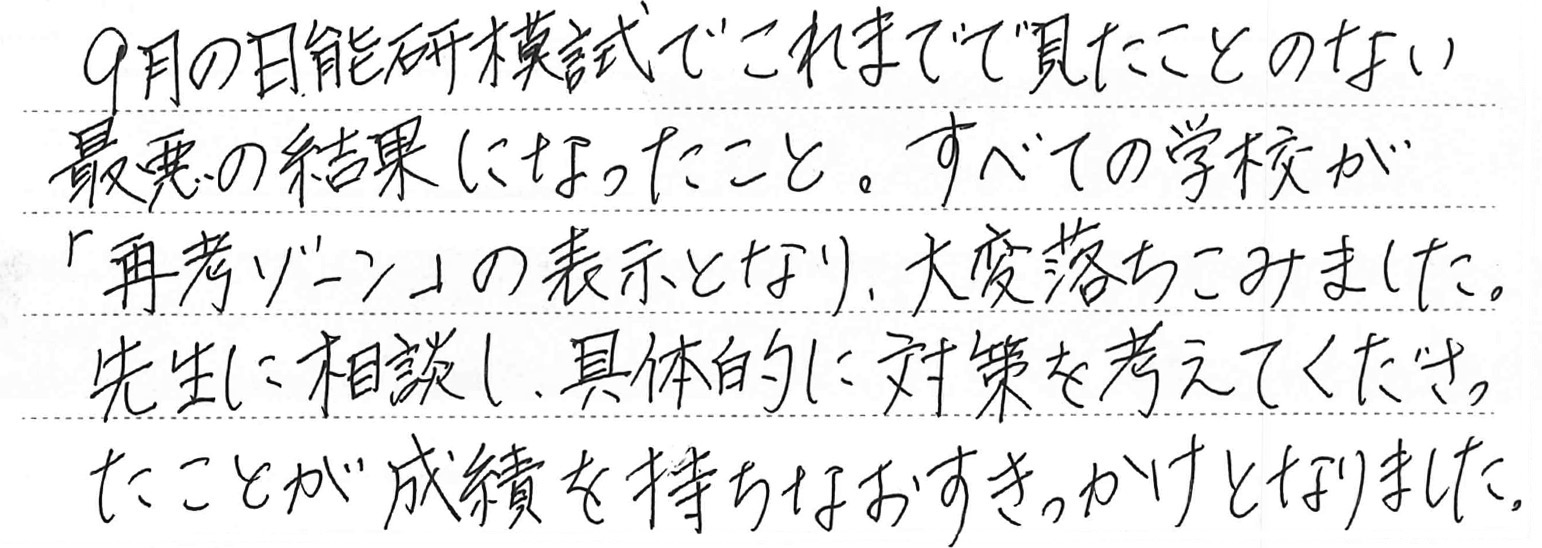 9月の日能研模試でこれまでで見たことのない
最悪の結果になったこと。すべての学校が
「再考ゾーン」の表示となり、大変落ちこみました。
先生に相談し、具体的に対策を考えてくださっ
たことが成績を持ちなおすきっかけとなりました。